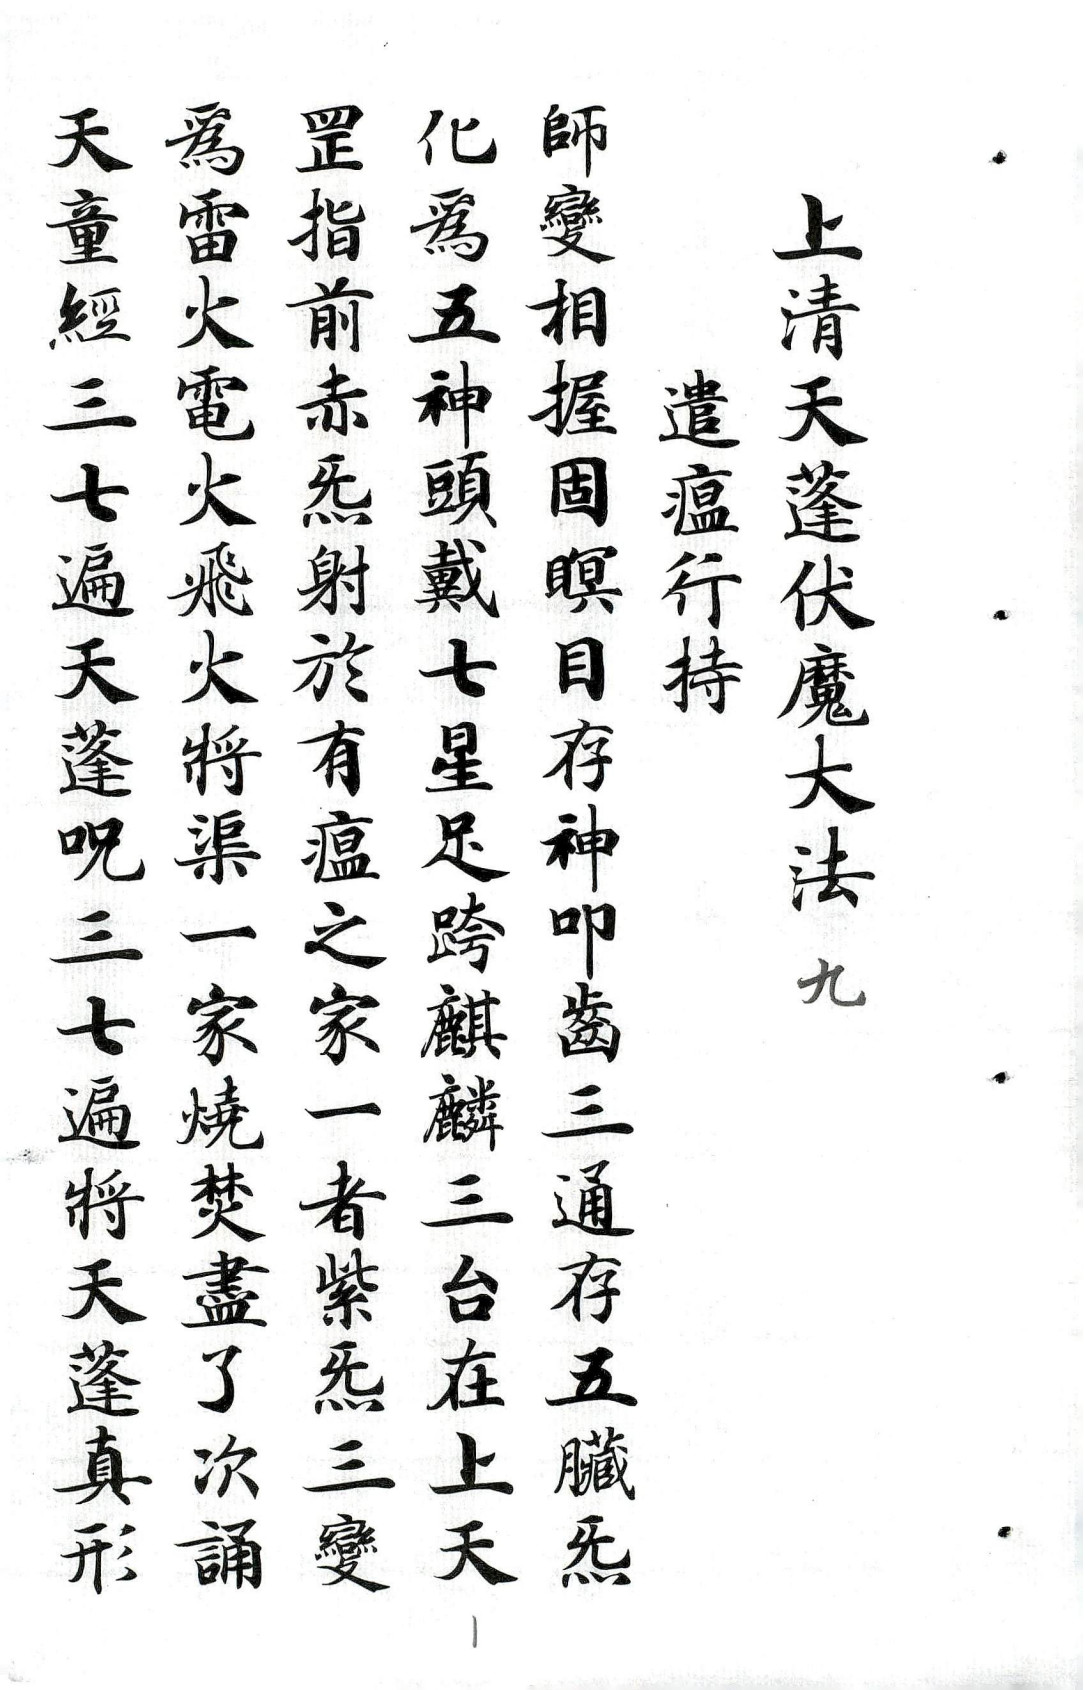 上清天蓬伏魔大法 九
遣瘟行持
師變相握固瞑目存神叩齒三通存五臟炁
化爲五神頭戴七星足跨麒麟三台在上天
罡指前赤炁射於有瘟之家一者紫炁三變
爲雷火電火飛火將渠一家燒焚盡了次誦
天童經三七遍天蓬呪三七遍將天蓬真形
1